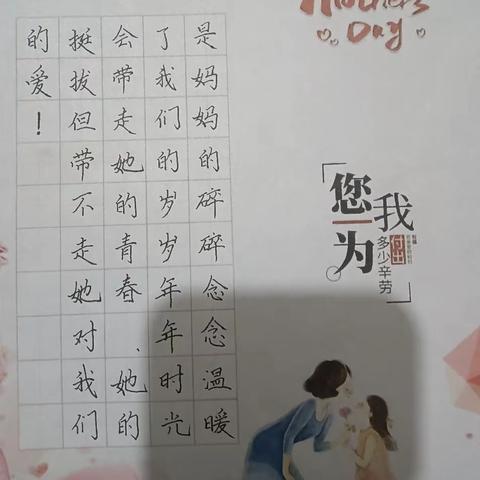 Mother's
Day
您为
我
付出
多少辛劳
是妈妈的碎碎念念温暖
了我们的岁岁年年时光
会带走她的青春、她的
挺拔但带不走她对我们
的爱！